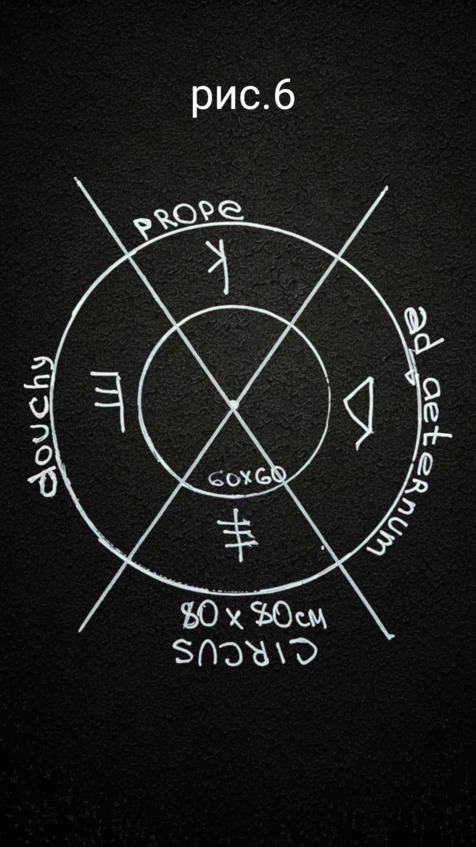 рис.6
PROPE
ad aeternum
douchy
60x60
80 x 80см
CIRCUS